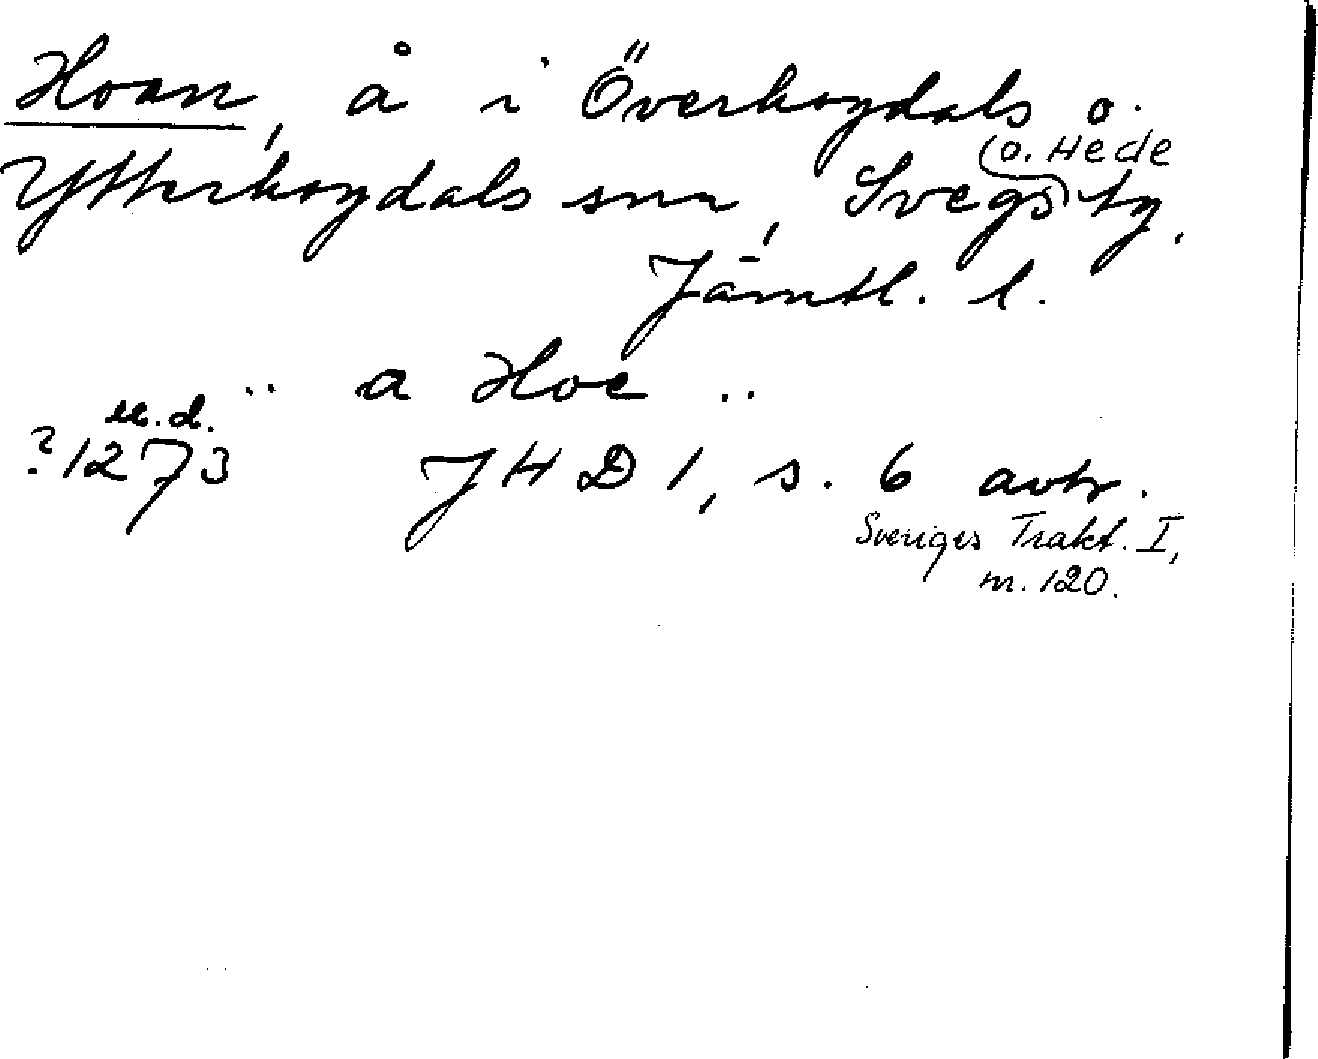 Hoan, å i Överhogdals o.
Ytterhogdals snr, Svegs (o. Hede) tg.
Jämtl. l.
.. a Hoe ..
u.d.
?1273 JHD 1, s. 6 avtr.
Sveriges Trakt. I,
nr. 120.